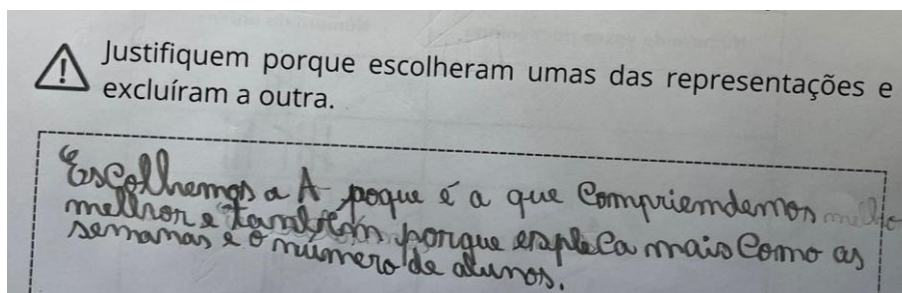 Justifiquem porque escolheram umas das representações e
excluíram a outra.
Escolhemos a A poque é a que Compriemdemos
melhor e também porque expleca mais Como as
semanas e o número de alunos.